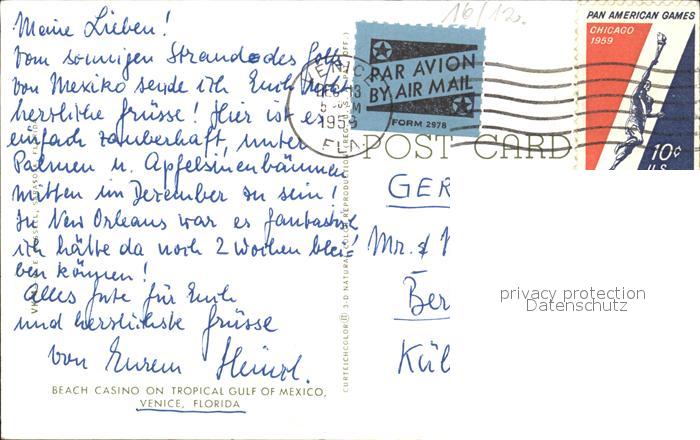 16/12.
Meine Lieben!
Vom sonnigen Strande des Golfs
von Mexiko sende ich Euch
herzliche Grüsse! Hier ist es
einfach zauberhaft, unter
Palmen u. Apfelsinenbäumen
mitten im Dezember zu sein!
In New Orleans war es fantastisch
ich hätte da noch 2 Wochen blei-
ben können!
Alles Gute für Euch
und herzlichste Grüsse
von Eurem Heinzl.
BEACH CASINO ON TROPICAL GULF OF MEXICO,
VENICE, FLORIDA
CURTEICHCOLOR 3-D NATURAL COLOR REPRODUCTION (REG. U.S.A. PAT. OFF.)
VENICE
DEC 13
PM
1959
FLA
PAR AVION
BY AIR MAIL
FORM 2978
PAN AMERICAN GAMES
CHICAGO
1959
10¢
U.S.
POST CARD
GER
Mr. &
Ber
Kül
privacy protection
Datenschutz